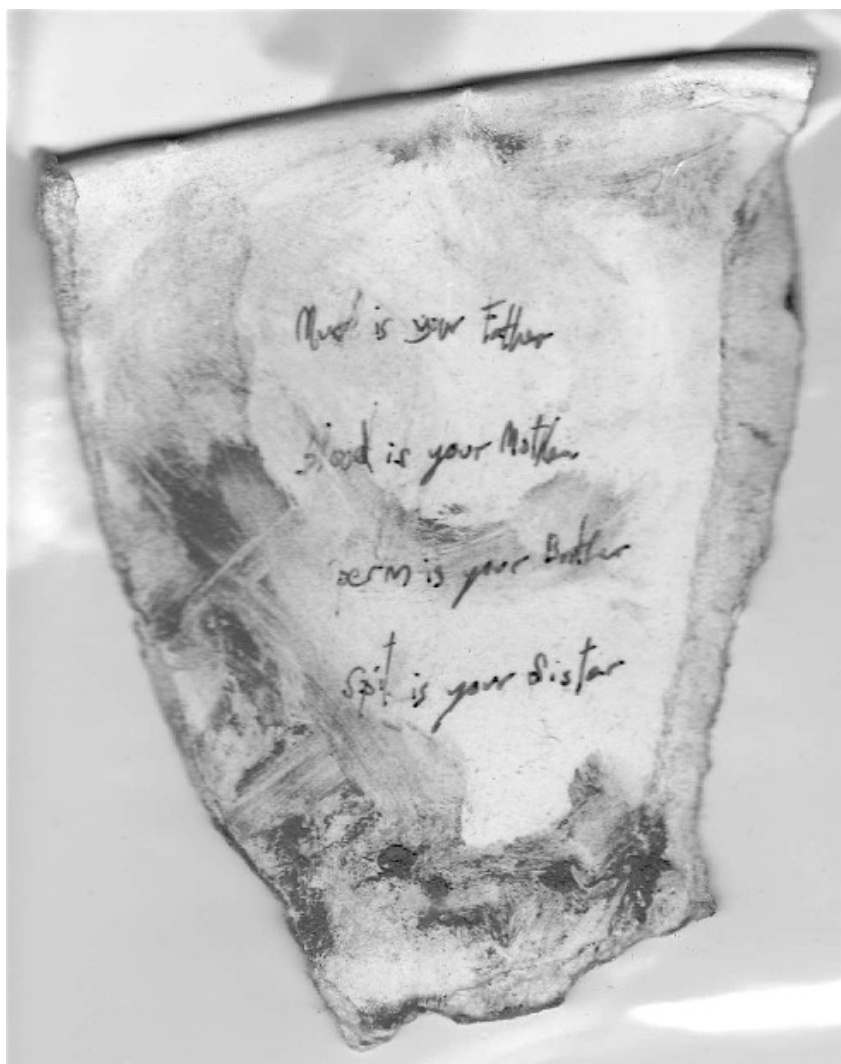 Mud is your Father
blood is your Mother
perm is your Brother
Spit is your Sister